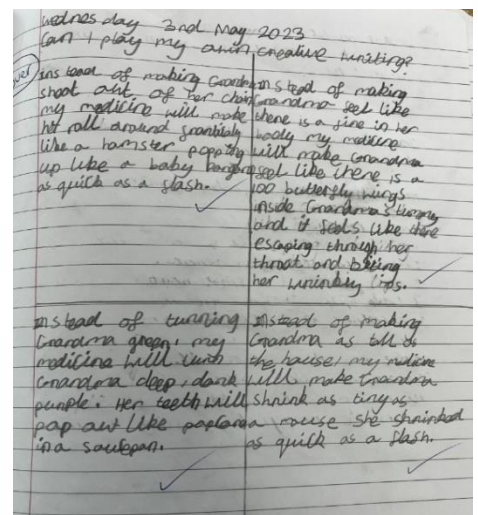 Wednesday 3nd May 2023
Can I play my own creative writing?
Instead of making Grandma
shoot out of her chair
my medicine will make
her roll around frantikly
like a hamster popping
up like a baby
as quick as a slash.
Instead of making
Grandma feel like
there is a fire in her
body my medicine
will make Grandma
feel like there is a
100 butterfly wings
inside Grandma's tummy
and it feels like there
escaping through her
throat and biting
her wrinkly lips.
Instead of turning
Grandma green, my
medicine will turn
Grandma deep, dark
purple. Her teeth will
pop out like popcorn
in a saucepan.
Instead of making
Grandma as tall as
the house, my medicine
will make Grandma
shrink as tiny as
a mouse she shrinked
as quick as a flash.